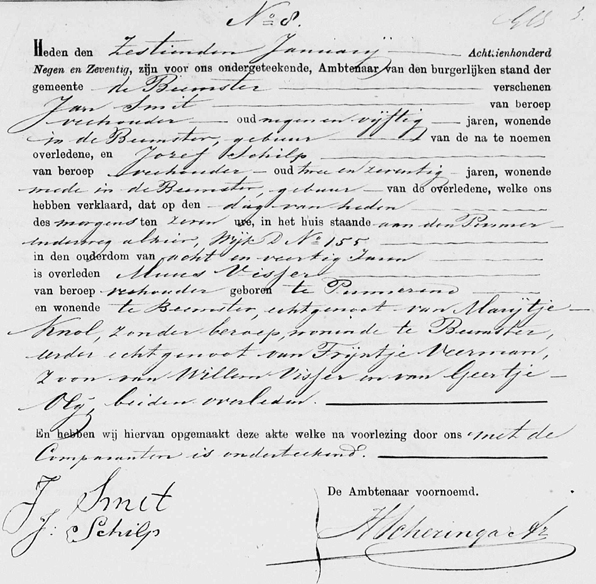 No. 8.
Heden den zestienden Januarij Achttienhonderd
Negen en Zeventig, zijn voor ons ondergeteekende, Ambtenaar van den burgerlijken stand der
gemeente de Beemster verschenen
Jan Smit van beroep
veehouder oud negen en vijftig jaren, wonende
in de Beemster, gebuur van de na te noemen
overledene, en Jozef Schilp
van beroep veehouder oud twee en zeventig jaren, wonende
mede in de Beemster, gebuur van de overledene, welke ons
hebben verklaard, dat op den dag van heden
des morgens ten zeven ure, in het huis staande aan den Purmer-
enderweg alhier, Wijk D No 155
in den ouderdom van acht en veertig Jaren
is overleden Muus Visser
van beroep veehouder geboren te Purmerend
en wonende te Beemster, echtgenoot van Marijtje
Knol, zonder beroep, wonende te Beemster,
eerder echtgenoot van Trijntje Veerman,
Zoon van Willem Visser en van Geertje
Olij, beiden overleden.
En hebben wij hiervan opgemaakt deze akte welke na voorlezing door ons met de
Comparanten is onderteekend.
J Smit
J: Schilp
De Ambtenaar voornoemd.
HScheringa Az